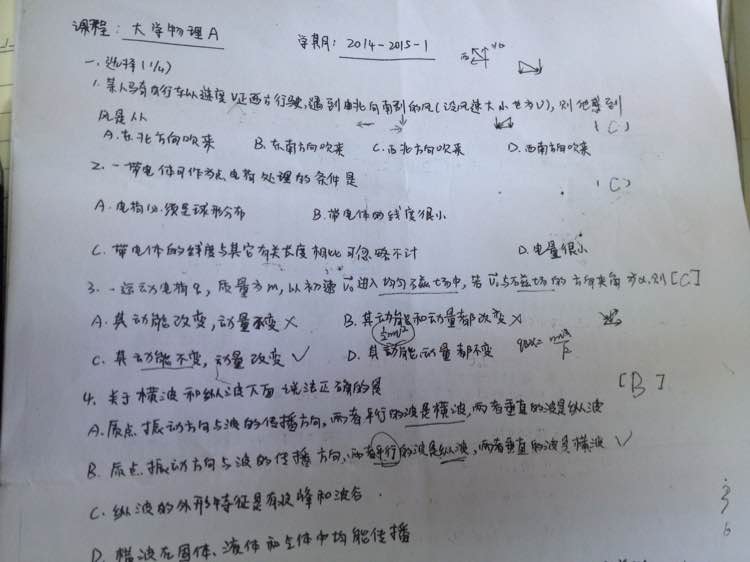 课程: 大学物理A 学期: 2014-2015-1
一、选择 (1'/4)
1. 某人骑自行车以速度V正西方行驶,遇到由北向南刮的风(设风速大小也为V),则他感到
风是从 (C)
A. 东北方向吹来 B. 东南方向吹来 C. 西北方向吹来 D. 西南方向吹来
2. 一带电体可作为点电荷处理的条件是 (C)
A. 电荷必须是球形分布 B. 带电体的线度很小
C. 带电体的线度与其它有关长度相比可忽略不计 D. 电量很小
3. 一运动电荷q,质量为m,以初速V₀进入均匀磁场中,若V₀与磁场的方向夹角为α,则[C]
A. 其动能改变,动量不变 × B. 其动能和动量都改变 ×
½mv²
C. 其动能不变,动量改变 √ D. 其动能、动量都不变
4. 关于横波和纵波下面说法正确的是 [B]
A. 质点振动方向与波的传播方向,两者平行的波是横波,两者垂直的波是纵波
B. 质点振动方向与波的传播方向,两者平行的波是纵波,两者垂直的波是横波 √
C. 纵波的外形特征是有波峰和波谷
D. 横波在固体、液体和气体中均能传播